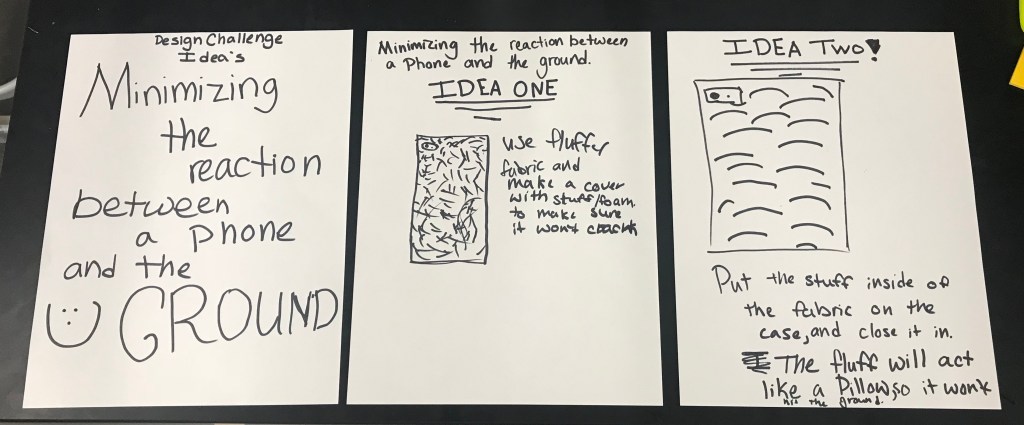 Design Challenge
Idea's
Minimizing
the
reaction
between
a phone
and the
GROUND
Minimizing the reaction between
a Phone and the ground.
IDEA ONE
use fluffer
fabric and
make a cover
with stuff/foam
to make sure
it wont
IDEA TWO!
Put the stuff inside of
the fabric on the
case, and close it in.
The fluff will act
like a Pillow, so it wont
hit the ground.